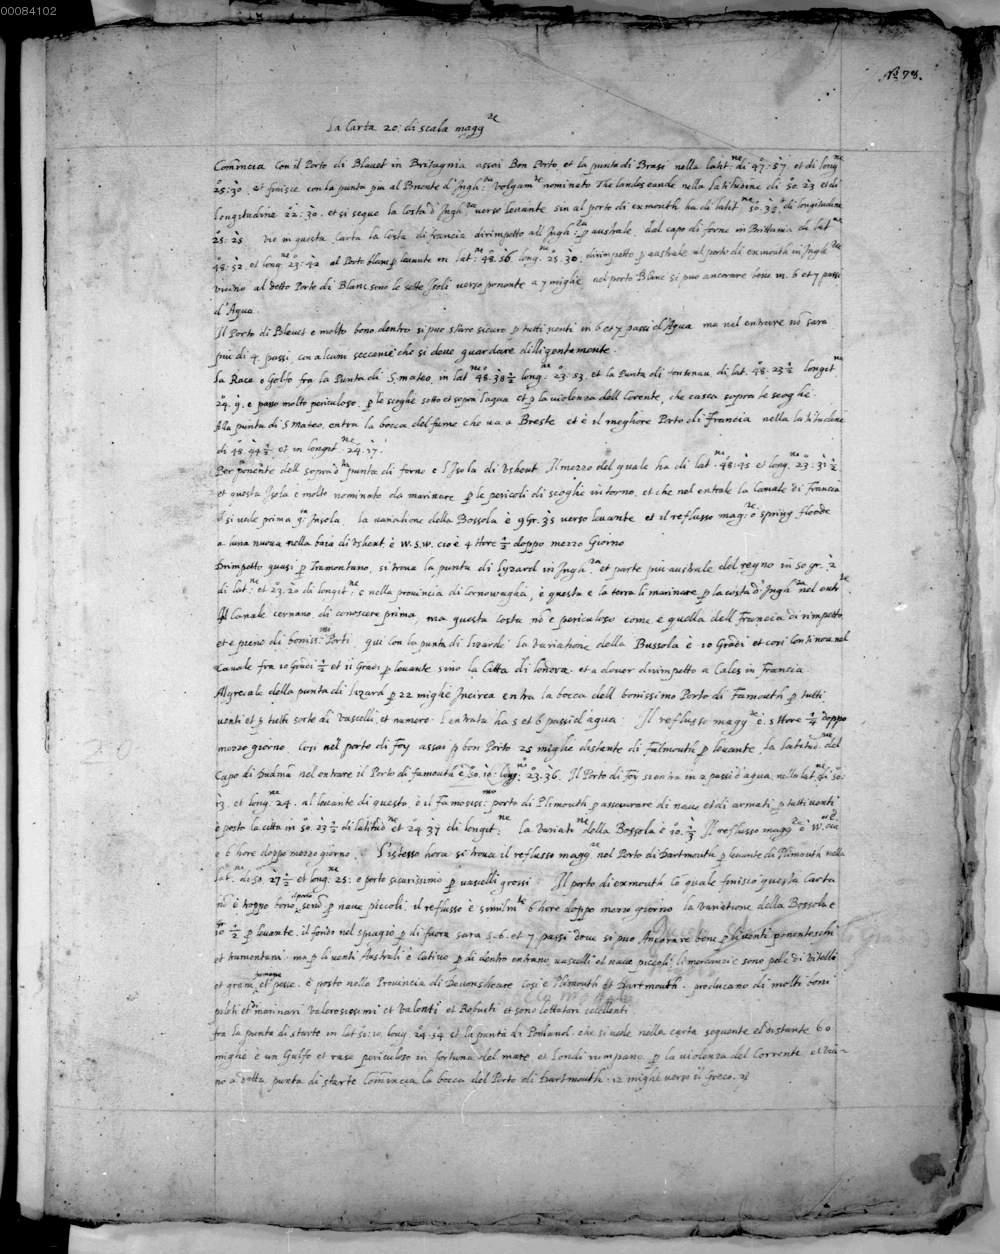 00084102
No 78.
La Carta 20: di scala magg.re
Comincia con il Porto di Blauet in Britagnia assai Bon Porto, et la punta di Brasi nella latit.ne di 47:57. et di long.ne
25:30. et finisce con la punta piu al Ponente d'Ingh.ra volgarm.te nominato The landes eande nella latitudine di 50. 23 et di
longitudine 22:30. et si segue la Costa d'Ingh.ra verso leuante sin al porto di exmouth ha di latit.ne 50. 3½. di longitudine
25:25 in questa Carta la Costa di francia dirimpetto all Ingh.ra p australe, dal capo di forne in Brittania da lat.ne
48:52. et long.ne 23:42 al Porto blanc p leuante in lat.ne 48.56. long.ne 25.30. dirimpetto p australe al porto di exmouth in Ingh.ra
vicino al detto Porto di Blanc sono le sette Isoli uerso ponente a 7 miglie nel porto Blanc si puo ancorare bene in. 6 et 7 passi
d'Agua
Il Porto di Blauet e molto bono dentro si puo stare sicuro p tutti uenti in 6 et 7 passi d'Agua ma nel entrare nō sara
piu di 4. passi, con alcuni seccanie che si deue guardare dilligentemente.
La Race o Golfo fra la Punta di S. mateo, in lat.ne 48.38½ long.ne 23:53. et la Punta di fontenau, di lat. 48.23½ longit.ne
24.9. e passo molto periculoso, p le scoglie sotto et sopra l'agua et p la violenza dell Corente, che casca sopra le scoglie
Alla punta di S Mateo, entra la bocca del fume che ua a Breste et è il megliore Porto di Francia nella latitudine
di 48.44½. et in longit.ne 24.17.
Per ponente dell sopra d.ta punta di forno e l'Isola di Vshent Il mezzo del quale ha di lat.ne 48:45 et long.ne 23:31½
et questa Isola e molto nominato da marinare p le pericoli di scoglie intorno, et che nel entrale la Canale di Francia
si uede prima q.ta Insola, la variatione della Bossola è 9 Gr. 35 verso leuante et il reflusso mag.re o spring floode
a luna nuova nella baia di Vshent, è W.S.W. cio è 4 Hore ½ doppo mezzo Giorno
Drimpetto quasi p Tramontano, si troua la punta di Lyzard in Ingh.ra et parte piu australe del regno in 50 gr. 2
di lat.ne et 23.20 di longit.ne, e nella prouincia di Cornowaghia, è questa e la terra li marinare p la costa d'Ingh.ra nel entr.re
Il Canale cercano di conoscere prima, ma questa costa nō e periculoso come e quella dell Francia di rimpetto
et e pieno di boniss.mo Porti qui con la punta di lizarde la variatione della Bussola è 10 Gradi et cosi continoua nel
Canale fra 10 Gradi ½ et 11 Gradi p leuante sino la Citta di londra. et a douer dirimpetto a Cales in Francia
Al grecale della punta di lizard p 22 miglie Incirca entra la bocca dell bonissimo Porto di Famouth p tutti
uenti et p tutti sorte di vascelli, et numero. l'entrata ha 5 et 6 passi d'agua Il reflusso magg.re è. 5 Hore ¼ doppo
mezzo giorno. Cosi nel porto di Foy assai p bon Porto 25 miglie distante di Falmouth p leuante, la latitud.ne del
Capo di Dudmā nel entrare il Porto di famouth è 50.10: long.ne 23.36. Il Porto di Foy si entra in 2 passi d'agua, nella lat.ne di 50:
13. et long.ne 24. al leuante di questo, è il Famosiss.mo porto di Plimouth p assecurare di naue et di armati p tutti uenti
è posto la citta in 50.23½ di latitud.ne et 24.37 di longit.ne la variati.ne della Bossola è 10.⅓ Il reflusso magg.re è W.
e 6 hore doppo mezzo giorno. l'istesso hora si troua il reflusso magg.re nel Porto di Dartmouth p leuante di Plimouth nella
lat.ne di 50. 27½ et long.ne 25: e porto sicurissimo p vascelli grossi Il porto di exmouth lo quale finisce questa Carta
nō è troppo bono porto senō p naue piccoli. il reflusso è similm.te 6 hore doppo mezzo giorno la variatione della Bossola e
10½ p leuante. il fondo nel spiagio p di fuora sara 5-6. et 7 passi doue si puo Ancorare bene p li uenti ponenteschi
et tramontani. ma p li uenti Australi è Catiuo p di dentro entrano, vascelli et naue piccoli. li meranzie sono pelle di Vitelli
et grani, et pomege pesce. e posto nella Prouincia di Deuonsheare cosi e Plimouth et Dartmouth. producano di molti boni
piloti et marinari valerosissimi et Valonti et Robusti et sono lottatori excellenti
fra la punta di starte in lat 50:10 long. 24.54 et la punta di Portland. che si uede nella carta seguente el distante 60
miglie è un Gulfo et rasa periculoso in fortuna del mare, et l'ondi rumpano p la violenza del Corrente el vici-
no a detta punta di starte Comincia la bocca del Porto di Dartmouth. 12 miglie uerso il Greco.